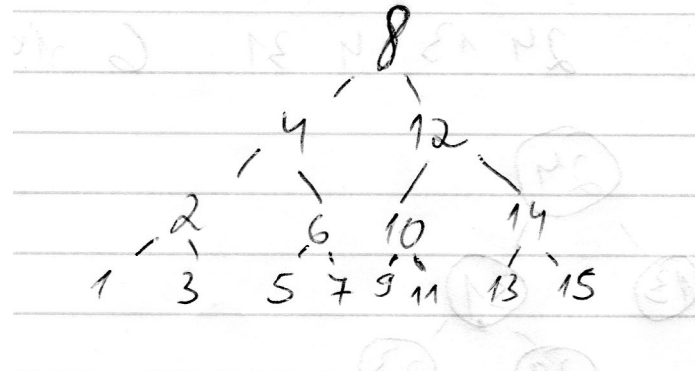 8
4 12
2 6 10 14
1 3 5 7 9 11 13 15